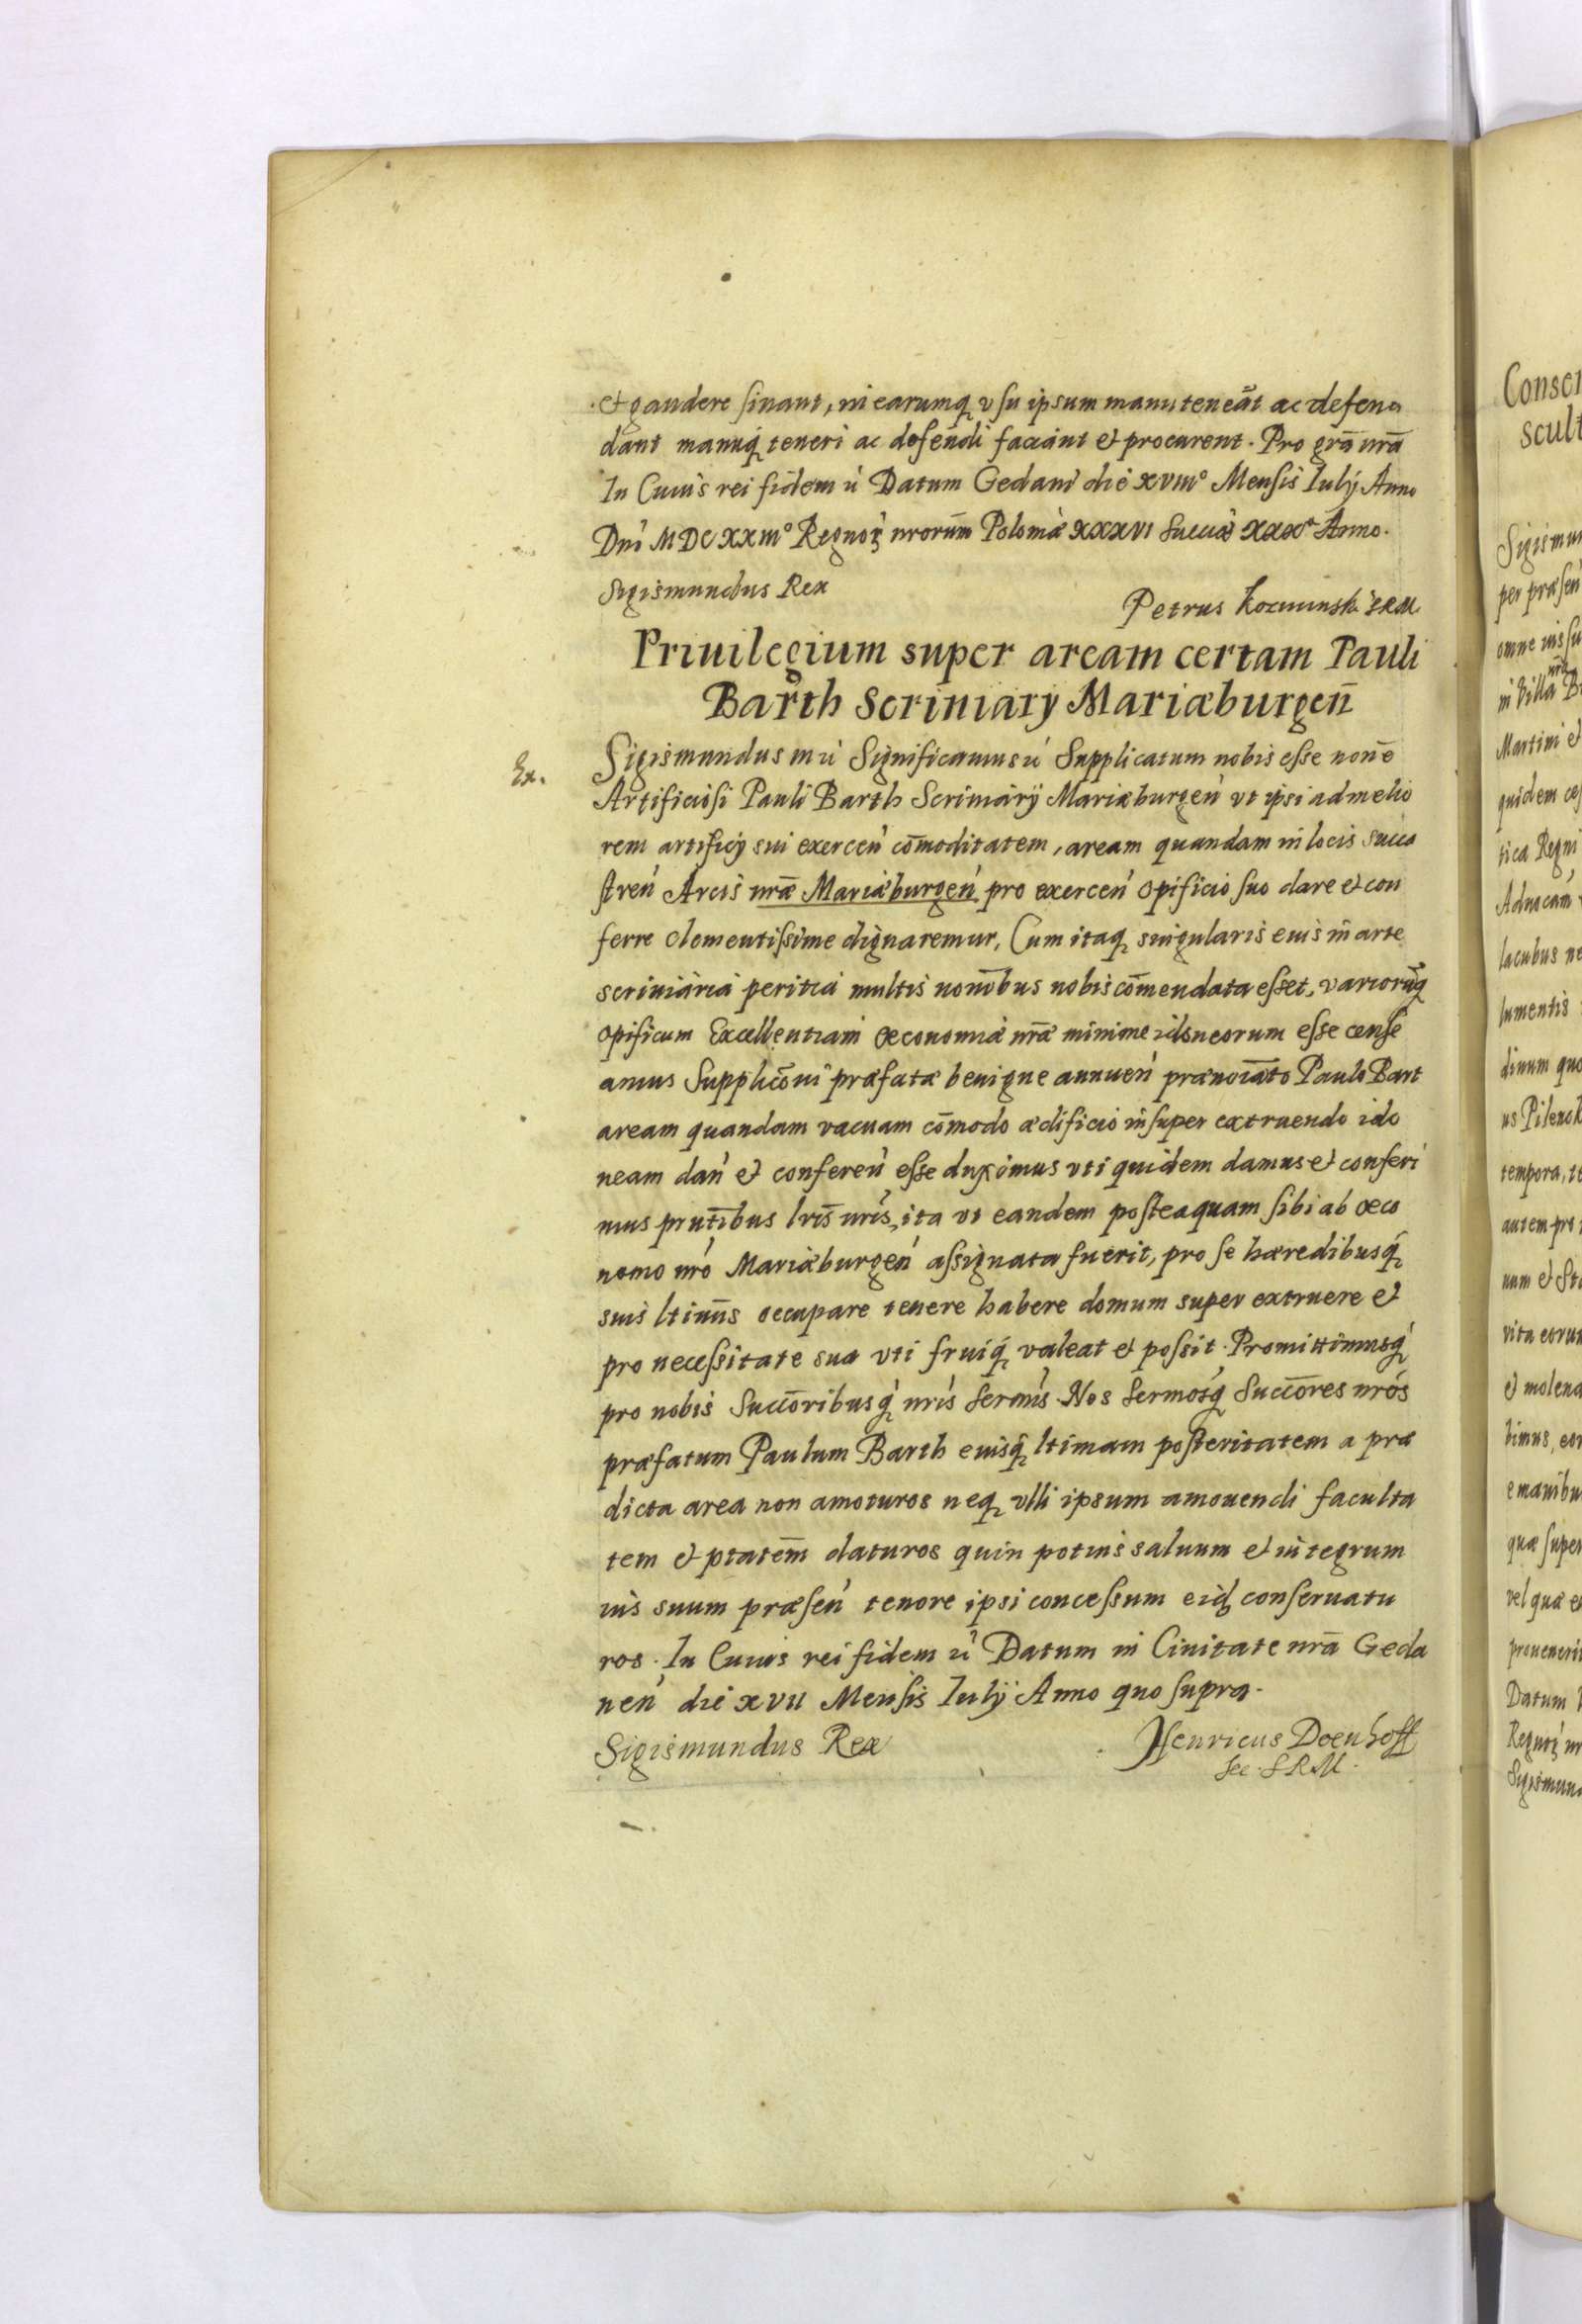 et gaudere sinant, in earumq usu ipsum manuteneāt ac defen
dant manuq́ teneri ac defendi faciant et procurent. Pro grā nrā
In Cuius rei fidem ń Datum Gedani die xviii° Mensis Iulij Anno
Dni MDCXXIII° Regnoꝝ nrorum̄ Poloniæ XXXVI Sueciæ XXX° Anno.
Sigismundus Rex
Petrus Kozminski SRM
Priuilegium super aream certam Pauli
Barth Scriniarÿ Mariæburgen̄
Ex.
Sigismundus III ń Significamus ń Supplicatum nobis esse non̄e
Artificiosi Pauli Barth Scriniarÿ Mariæburgeń vt ipsi ad melio
rem artificÿ sui exerceń com̄oditatem, aream quandam in locis succa
streń Arcis nrǣ Mariæburgeń pro exerceń opificio suo dare et con
ferre clementissime dignaremur, Cum itaq singularis eius in arte
scriniaria peritia multis nom̄bus nobis com̄endata esset, variorūq
opificum Excellentiam œconomiæ nrǣ minime idoneorum esse cense
amus Supplicōni præfatæ benigne annueń prænoīato Paulo Bart
aream quandam vacuam com̄odo ædificio insuper extruendo ido
neam dań et confereń esse duximus vti quidem damus et conferi
mus pnt̄ibus lris̄ nris, ita vt eandem posteaquam sibi ab œco
nomo nró Mariæburgeń assignata fuerit, pro se hæredibusq́
suis ltimīs occupare tenere habere domum super extruere et
pro necessitate sua vti fruiq́ valeat et possit. Promittimusq́
pro nobis Succōribusq́ nris Sermis. Nos Sermosq́ Succōres nrós
præfatum Paulum Barth eiusq́ ltimam posteritatem a præ
dicta area non amoturos neq vlli ipsum amouendi faculta
tem et ptatem̄ daturos quin potius saluum et integrum
ius suum præseń tenore ipsi concessum eidꝫ conseruatu
ros. In Cuius rei fidem ń Datum in Ciuitate nrā Geda
neń die xvii Mensis Iulÿ Anno quo supra.
Sigismundus Rex
Henricus Doenhoff
Sec. S R M.